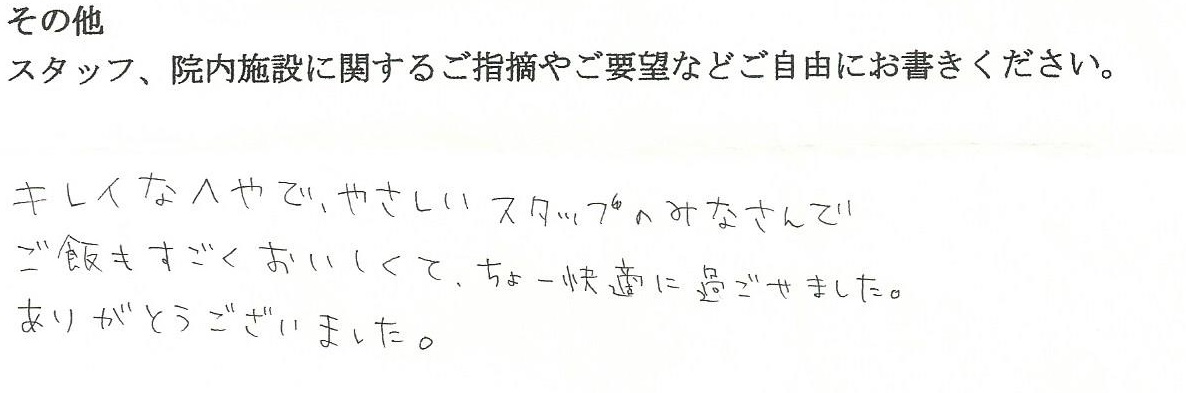 その他
スタッフ、院内施設に関するご指摘やご要望などご自由にお書きください。
キレイなへやで、やさしいスタッフのみなさんで
ご飯もすごくおいしくて、ちょー快適に過ごせました。
ありがとうございました。